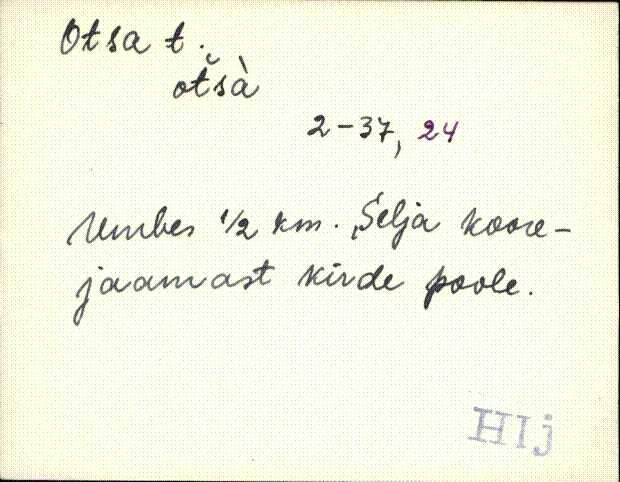 Otsa t.
otšà
2-37, 24
Umbes 1/2 km. Selja koore-
jaamast kirde poole.
HIj